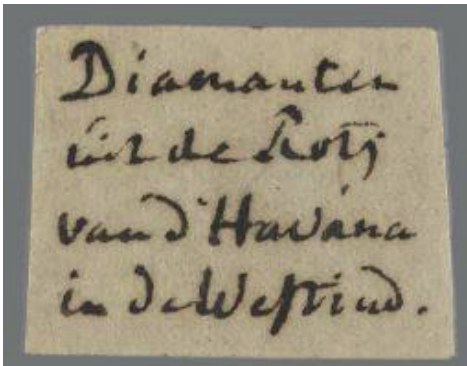 Diamanten
uit de Rots
van d'Havana
in de Westind.